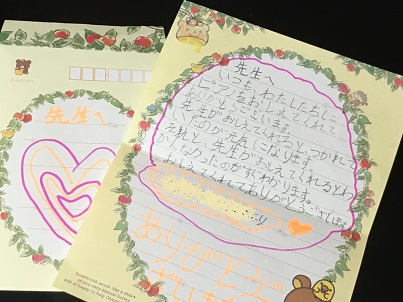 先生へ
先生へ
いつも、わたしたちに
ピアノをおしえてくれて
ありがとうございます。
先生がおしえてくれると、つかれて
いたのが元気になります。
それと、先生がおしえてくれるとわ
かんなかったのがすぐわかります。
おしえてくれてありがとうございます。
より
ありがとう